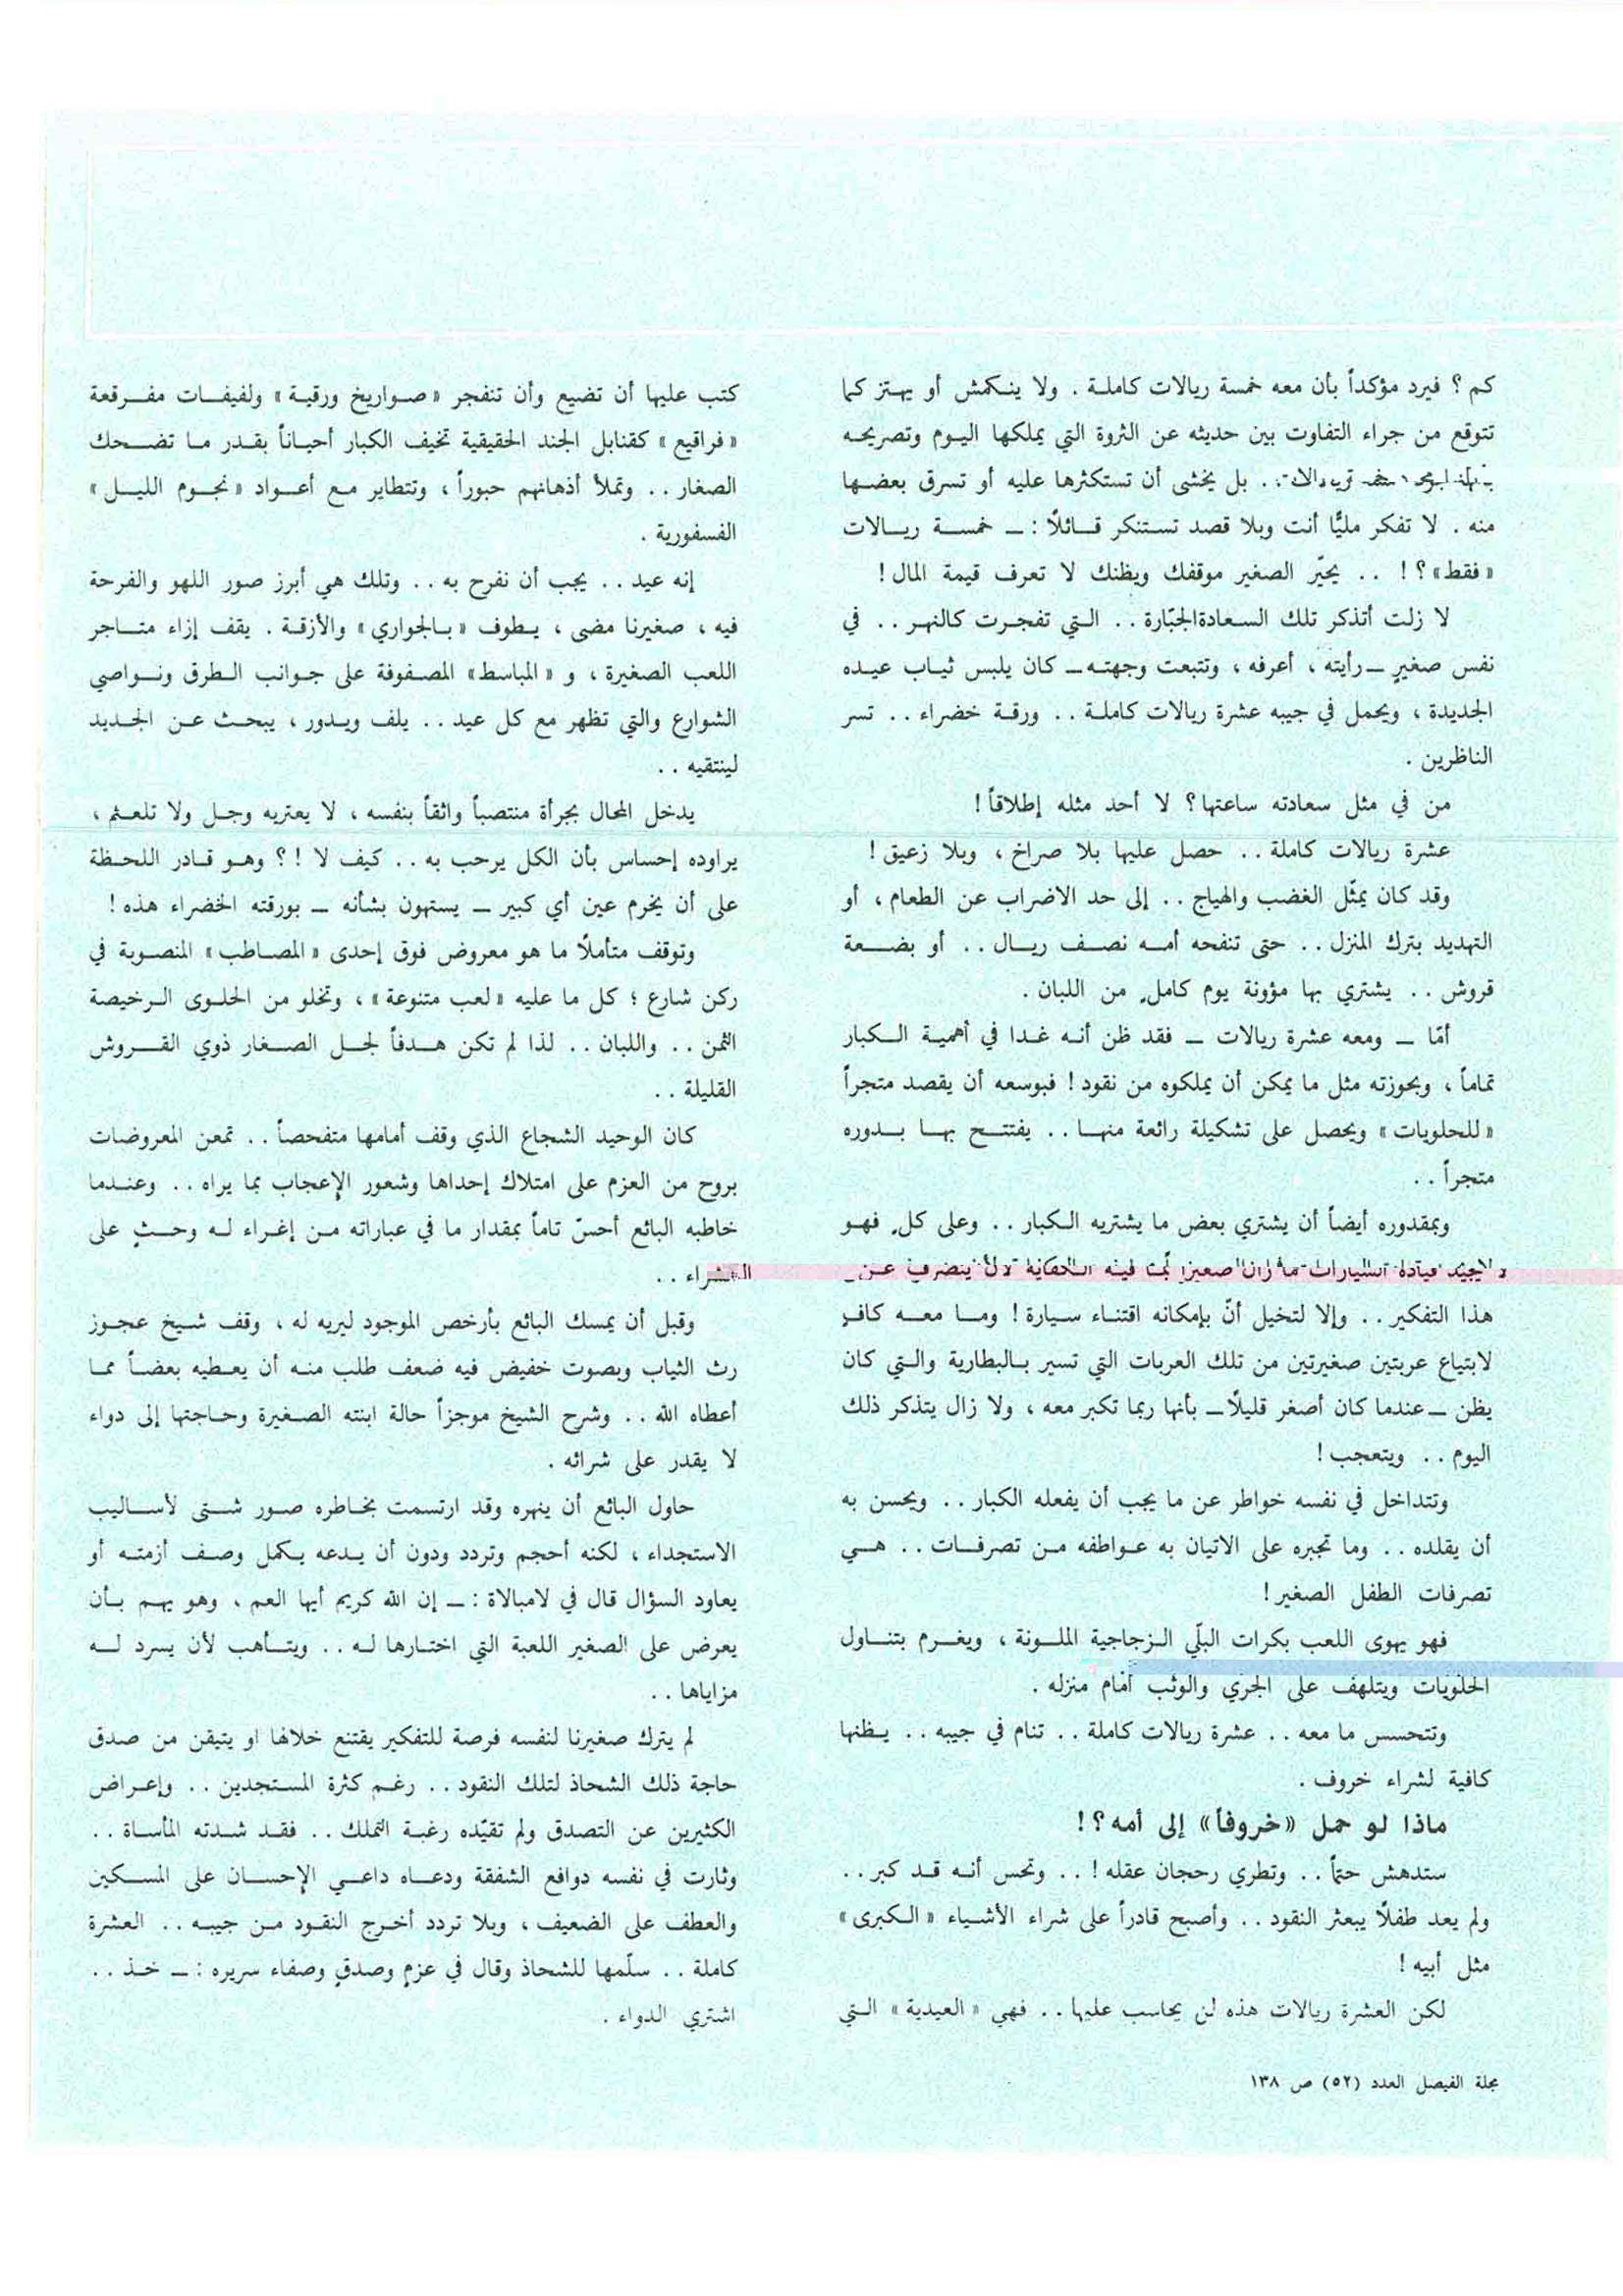 كم ؟ فيرد مؤكداً بأن معه خمسة ريالات كاملة . ولا ينكمش أو يهتز كما
تتوقع من جراء التفاوت بين حديثه عن الثروة التي يملكها اليوم وتصريحه
بل يخشى أن تستكثرها عليه أو تسرق بعضها
منه . لا تفكر مليًّا أنت وبلا قصد تستنكر قائلاً : ــ خمسة ريالات
« فقط » ؟ ! . . يحيّر الصغير موقفك ويظنك لا تعرف قيمة المال !
لا زلت أتذكر تلك السعادة الجبّارة . . التي تفجرت كالنهر . . في
نفس صغيرٍ ــ رأيته ، أعرفه ، وتتبعت وجهته ــ كان يلبس ثياب عيده
الجديدة ، ويحمل في جيبه عشرة ريالات كاملة . . ورقة خضراء . . تسر
الناظرين .
من في مثل سعادته ساعتها ؟ لا أحد مثله إطلاقاً !
عشرة ريالات كاملة . . حصل عليها بلا صراخ ، وبلا زعيق !
وقد كان يمثّل الغضب والهياج . . إلى حد الاضراب عن الطعام ، أو
التهديد بترك المنزل . . حتى تنفحه أمه نصف ريال . . أو بضعة
قروش . . يشتري بها مؤونة يوم كامل من اللبان .
أمّا ــ ومعه عشرة ريالات ــ فقد ظن أنه غدا في أهمية الكبار
تماماً ، وبحوزته مثل ما يمكن أن يملكوه من نقود ! فبوسعه أن يقصد متجراً
« للحلويات » ويحصل على تشكيلة رائعة منها . . يفتتح بها بدوره
متجراً . .
وبمقدوره أيضاً أن يشتري بعض ما يشتريه الكبار . . وعلى كلٍ فهو
لا يجيد قيادة السيارات ما زال صغيرا
هذا التفكير . . وإلا لتخيل أنّ بإمكانه اقتناء سيارة ! وما معه كافٍ
لابتياع عربتين صغيرتين من تلك العربات التي تسير بالبطارية والتي كان
يظن ــ عندما كان أصغر قليلاً ــ بأنها ربما تكبر معه ، ولا زال يتذكر ذلك
اليوم . . ويتعجب !
وتتداخل في نفسه خواطر عن ما يجب أن يفعله الكبار . . ويحسن به
أن يقلده . . وما تجبره على الاتيان به عواطفه من تصرفات . . هي
تصرفات الطفل الصغير !
فهو يهوى اللعب بكرات البلّي الزجاجية الملونة ، ويغرم بتناول
الحلويات ويتلهف على الجري والوثب أمام منزله .
وتتحسس ما معه . . عشرة ريالات كاملة . . تنام في جيبه . . يظنها
كافية لشراء خروف .
ماذا لو حمل « خروفاً » إلى أمه ؟ !
ستدهش حتماً . . وتطري رحجان عقله ! . . وتحس أنه قد كبر . .
ولم يعد طفلاً يبعثر النقود . . وأصبح قادراً على شراء الأشياء « الكبرى »
مثل أبيه !
لكن العشرة ريالات هذه لن يحاسب عليها . . فهي « العيدية » التي
كتب عليها أن تضيع وأن تنفجر « صواريخ ورقية » ولفيفات مفرقعة
« فراقيع » كقنابل الجند الحقيقية تخيف الكبار أحياناً بقدر ما تضحك
الصغار . . وتملأ أذهانهم حبوراً ، وتتطاير مع أعواد « نجوم الليل »
الفسفورية .
إنه عيد . . يجب أن نفرح به . . وتلك هي أبرز صور اللهو والفرحة
فيه ، صغيرنا مضى ، يطوف « بالجواري » والأزقة . يقف إزاء متاجر
اللعب الصغيرة ، و « المباسط » المصفوفة على جوانب الطرق ونواصي
الشوارع والتي تظهر مع كل عيد . . يلف ويدور ، يبحث عن الجديد
لينتقيه . .
يدخل المحال بجرأة منتصباً واثقاً بنفسه ، لا يعتريه وجل ولا تلعثم ،
يراوده إحساس بأن الكل يرحب به . . كيف لا ! ؟ وهو قادر اللحظة
على أن يخرم عين أي كبير ــ يستهون بشأنه ــ بورقته الخضراء هذه !
وتوقف متأملاً ما هو معروض فوق إحدى « المصاطب » المنصوبة في
ركن شارع ؛ كل ما عليه « لعب متنوعة » ، وتخلو من الحلوى الرخيصة
الثمن . . واللبان . . لذا لم تكن هدفاً لجل الصغار ذوي القروش
القليلة . .
كان الوحيد الشجاع الذي وقف أمامها متفحصاً . . تمعن المعروضات
بروح من العزم على امتلاك إحداها وشعور الإعجاب بما يراه . . وعندما
خاطبه البائع أحسّ تاماً بمقدار ما في عباراته من إغراء له وحثٍ على
الشراء . .
وقبل أن يمسك البائع بأرخص الموجود ليريه له ، وقف شيخ عجوز
رث الثياب وبصوت خفيض فيه ضعف طلب منه أن يعطيه بعضاً مما
أعطاه الله . . وشرح الشيخ موجزاً حالة ابنته الصغيرة وحاجتها إلى دواء
لا يقدر على شرائه .
حاول البائع أن ينهره وقد ارتسمت بخاطره صور شتى لأساليب
الاستجداء ، لكنه أحجم وتردد ودون أن يدعه يكمل وصف أزمته أو
يعاود السؤال قال في لامبالاة : ــ إن الله كريم أيها العم ، وهو يهم بأن
يعرض على الصغير اللعبة التي اختارها له . . ويتأهب لأن يسرد له
مزاياها . .
لم يترك صغيرنا لنفسه فرصة للتفكير يقتنع خلالها او يتيقن من صدق
حاجة ذلك الشحاذ لتلك النقود . . رغم كثرة المستجدين . . وإعراض
الكثيرين عن التصدق ولم تقيّده رغبة التملك . . فقد شدته المأساة . .
وثارت في نفسه دوافع الشفقة ودعاه داعي الإحسان على المسكين
والعطف على الضعيف ، وبلا تردد أخرج النقود من جيبه . . العشرة
كاملة . . سلّمها للشحاذ وقال في عزمٍ وصدقٍ وصفاء سريره : ــ خذ . .
اشتري الدواء .
مجلة الفيصل العدد (٥٢) ص ١٣٨